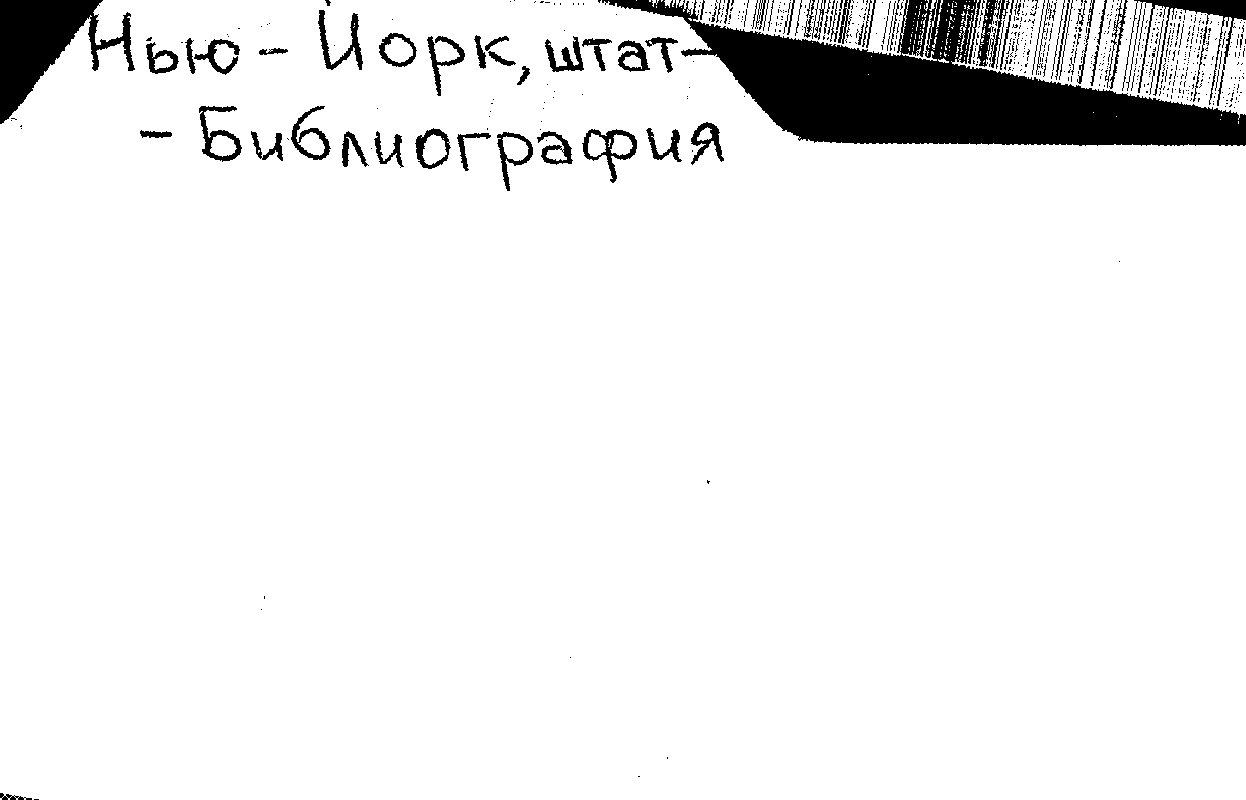 Нью-Йорк, штат-
- Библиография